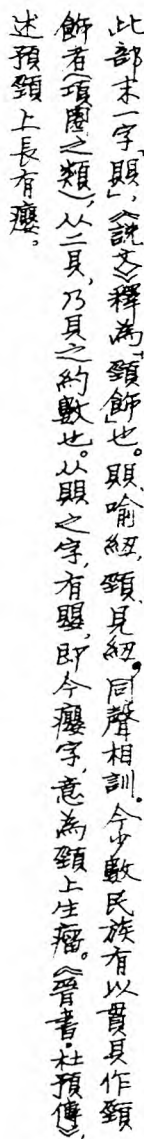 此部末一字「賏」，《說文》釋為「頸飾」也。賏、喻紐，頸、見紐，同聲相訓。今少數民族有以貫貝作頸
飾者（項圈之類），从二貝，乃貝之約數也。从賏之字，有䁝，即今癭字，意為頸上生瘤。《晉書·杜預傳》，
述預頸上長有癭。